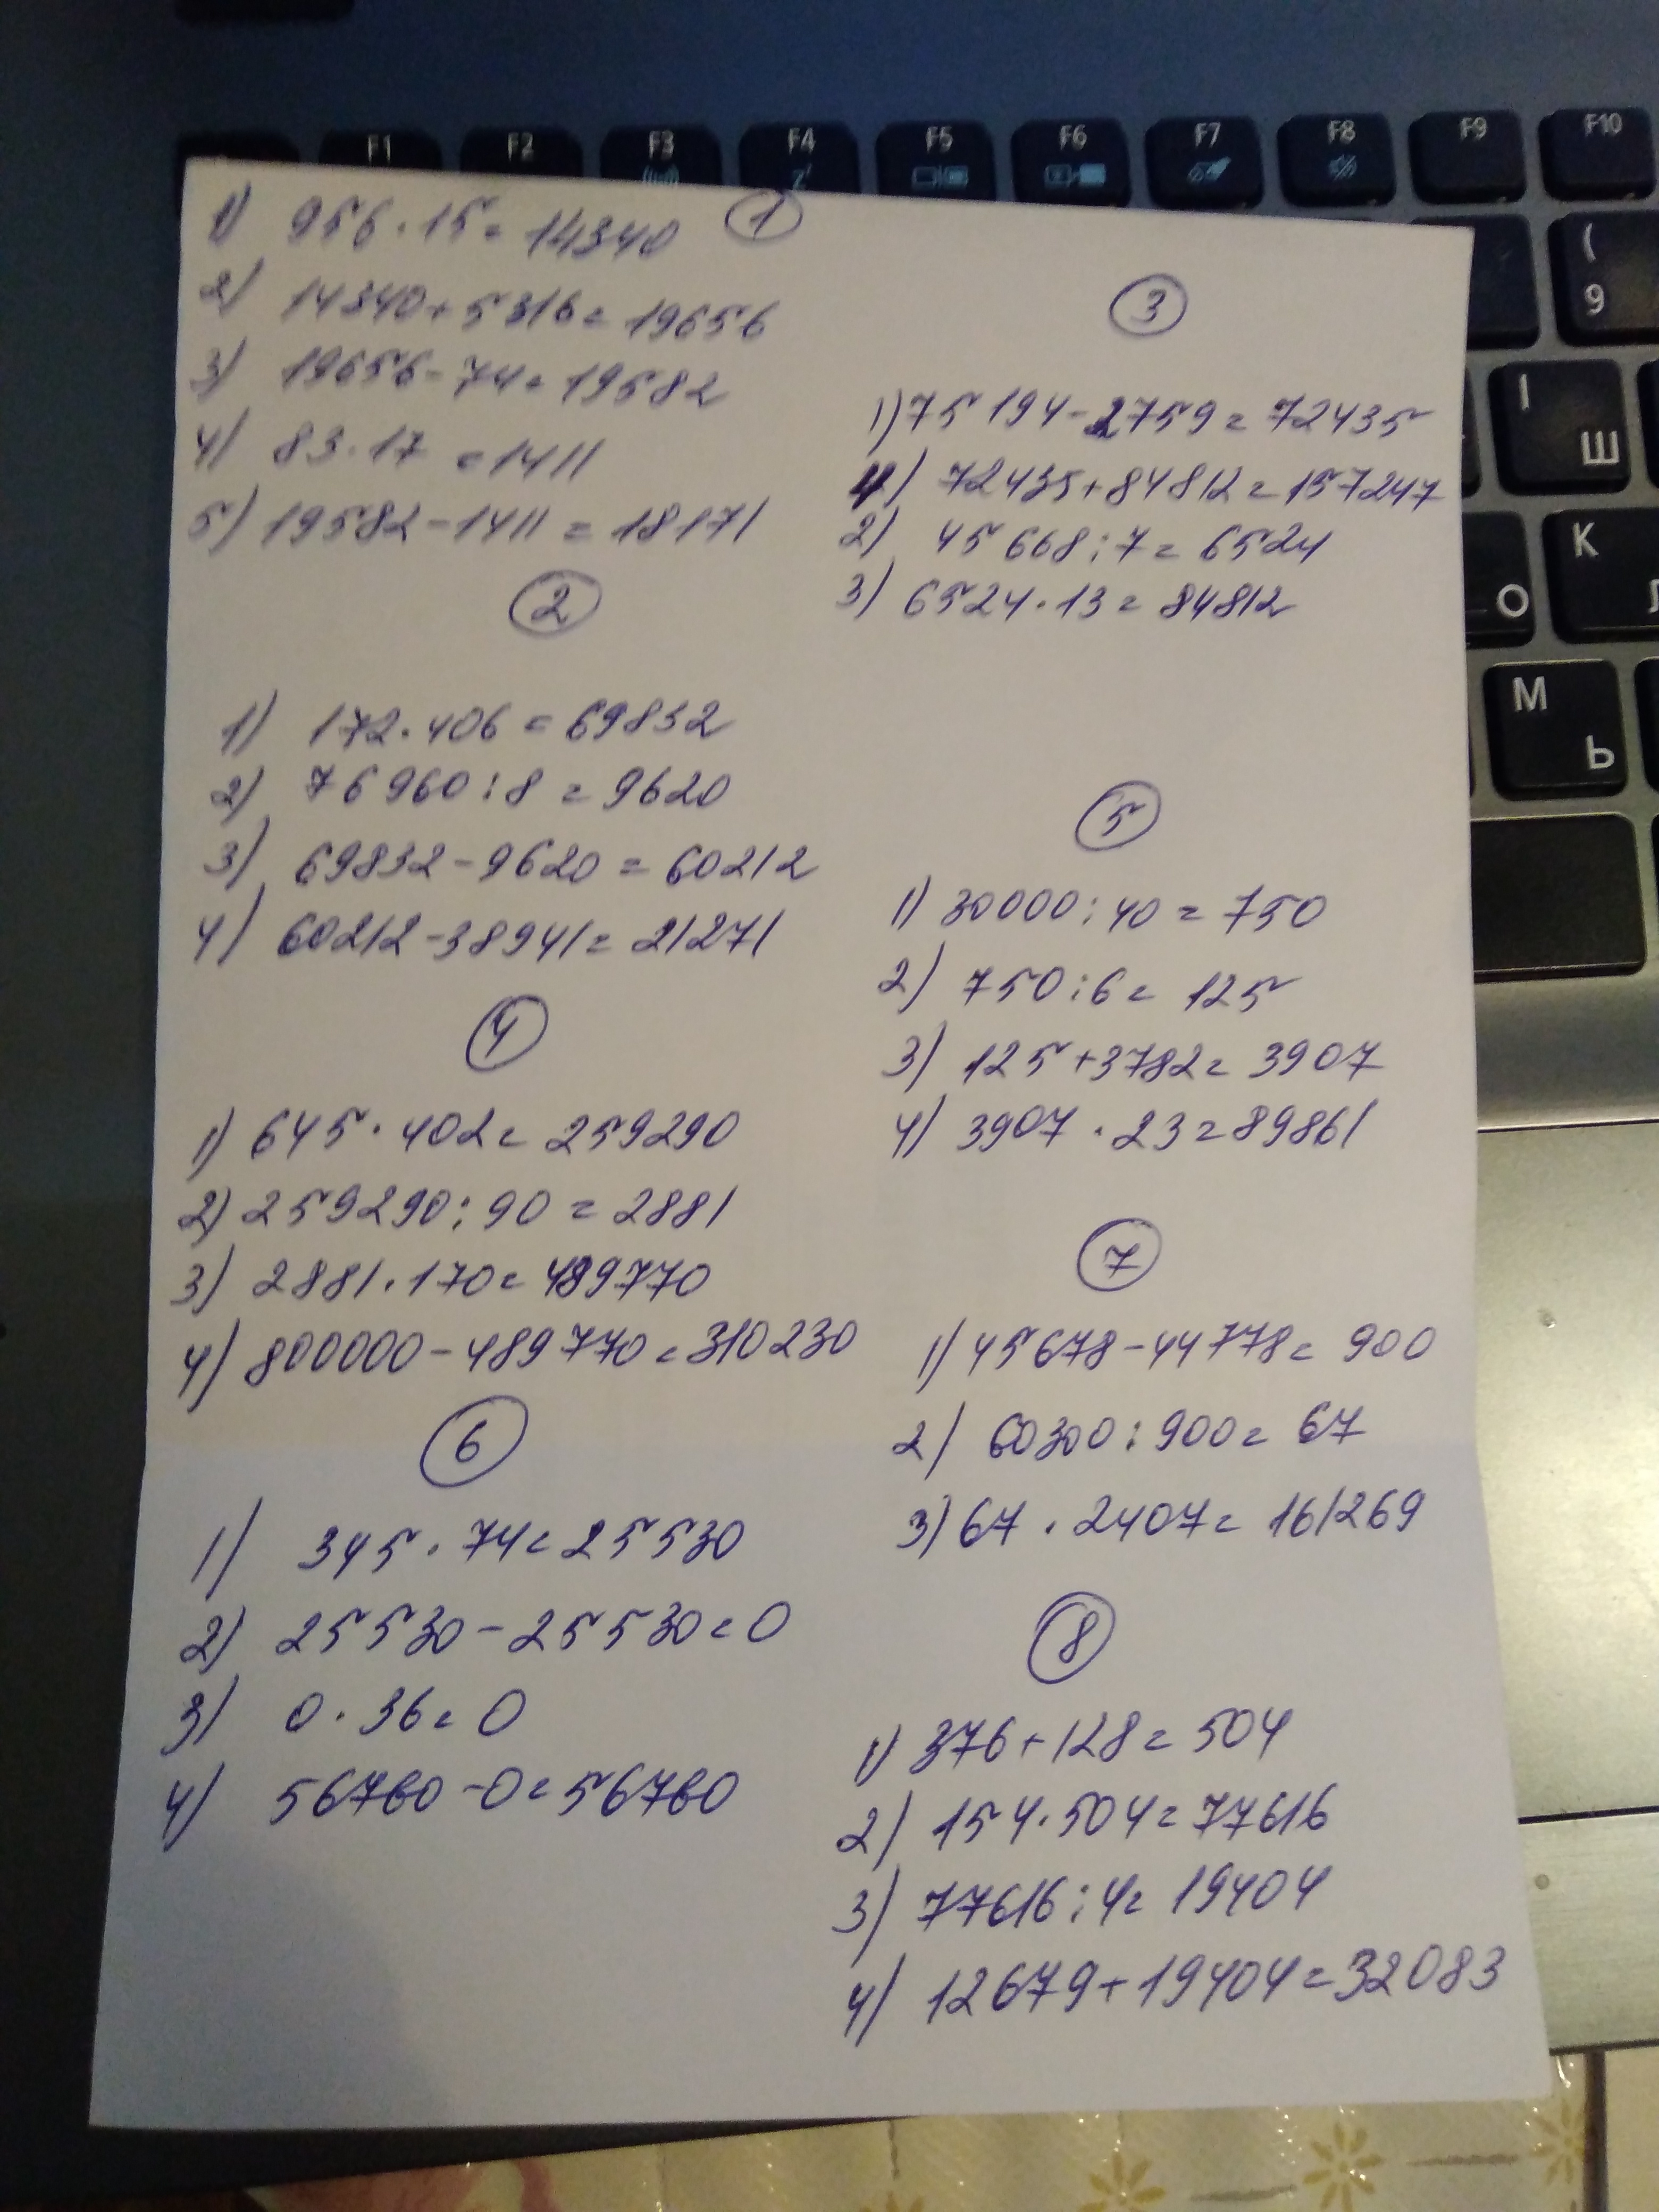 F1 F2 F3 F4 F5 F6 F7 F8 F9 F10
1) 956·15=14340
①
2) 14340+5316=19656
3) 19656-74=19582
4) 83·17=1411
5) 19582-1411=18171
②
1) 172·406=69832
2) 76960:8=9620
3) 69832-9620=60212
4) 60212-38941=21271
④
1) 645·402=259290
2) 259290:90=2881
3) 2881·170=489770
4) 800000-489770=310230
⑥
1) 345·74=25530
2) 25530-25530=0
3) 0·36=0
4) 56760-0=56760
③
1) 75194-2759=72435
4) 72435+84812=157247
2) 45668:7=6524
3) 6524·13=84812
⑤
1) 30000:40=750
2) 750:6=125
3) 125+3782=3907
4) 3907·23=89861
⑦
1) 45678-44778=900
2) 60300:900=67
3) 67·2407=161269
⑧
1) 376+128=504
2) 154·504=77616
3) 77616:4=19404
4) 12679+19404=32083
(
9
I
Ш
O
K
M
Ь